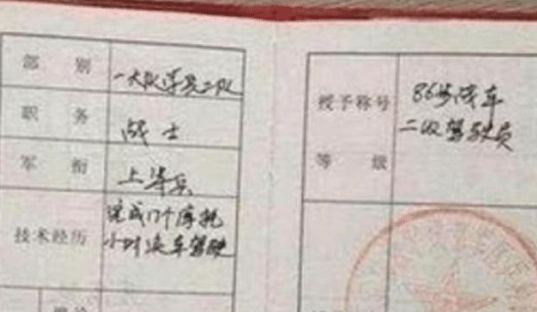 部别
一大队学员二队
职务
战士
军衔
上等兵
技术经历
完成17个摩托
小时乘车驾驶
授予称号
等级
86步战车
二级驾驶员